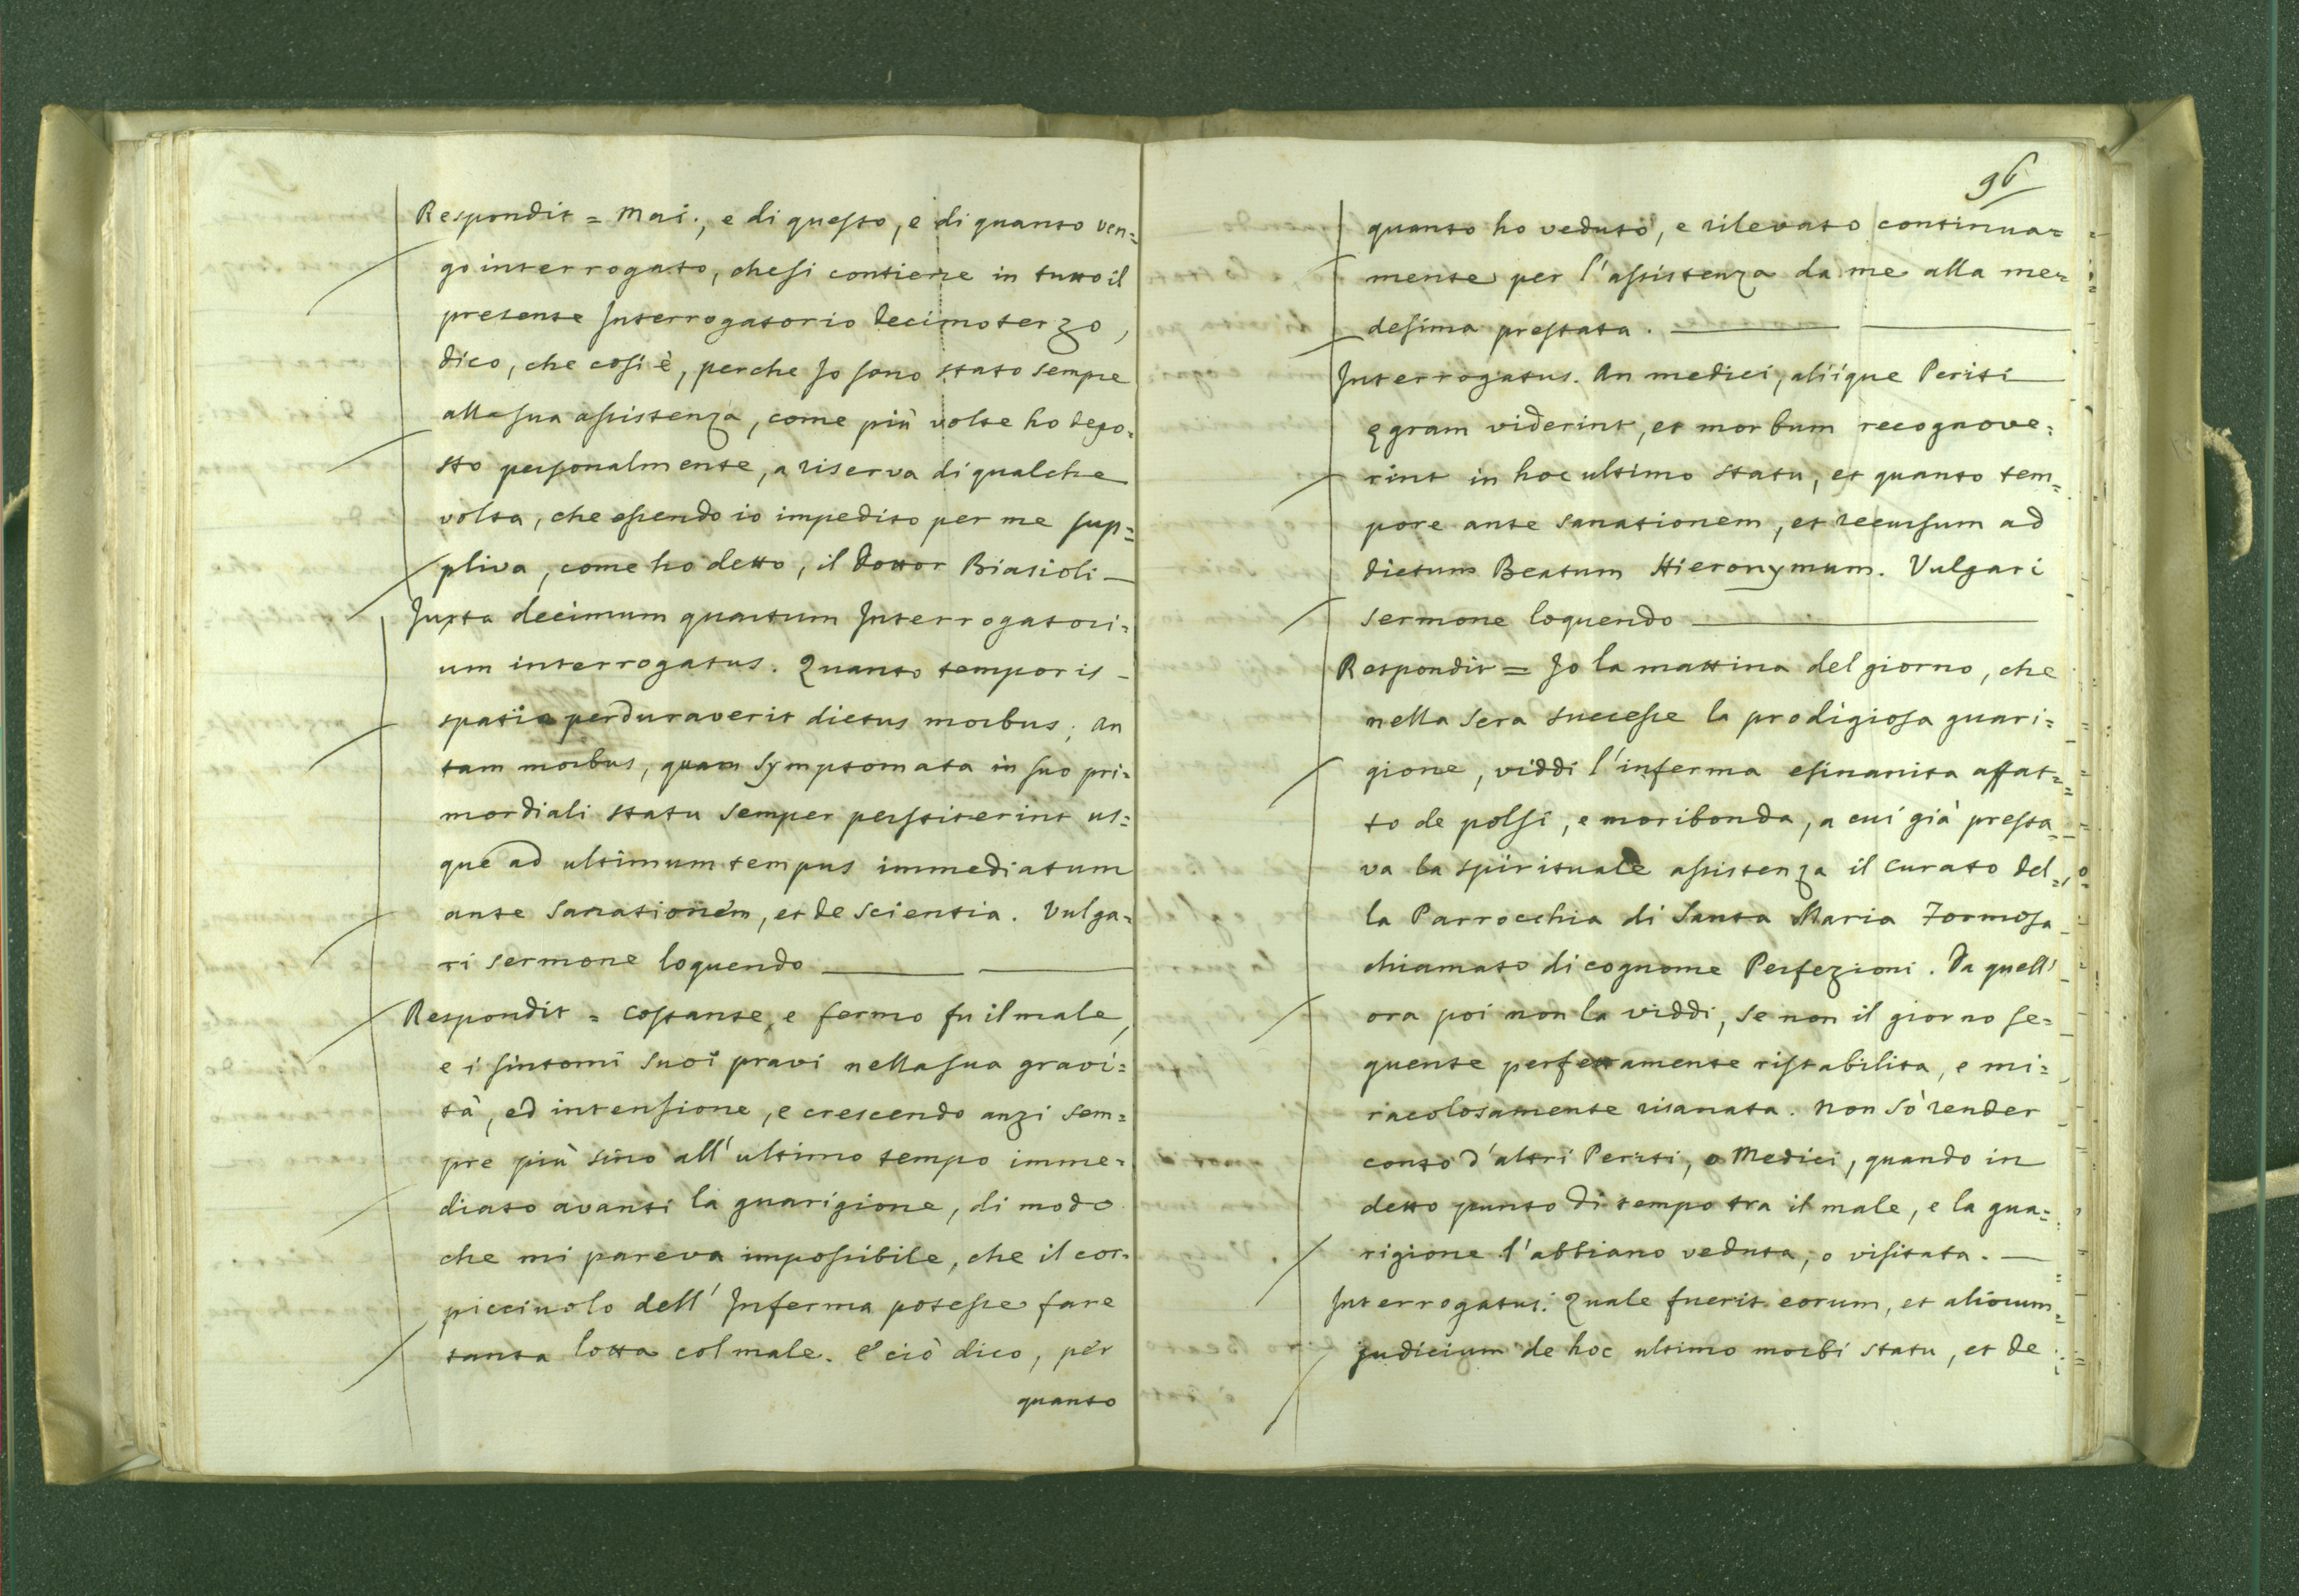 Respondit = Mai., e di questo, e di quanto ven=
go interrogato, che si contiene in tutto il
presente Interrogatorio decimoterzo,
dico, che così è, perche Io sono stato sempre
alla sua assistenza, come più volte ho depo=
sto personalmente, a riserva di qualche
volta, che essendo io impedito per me sup=
pliva, come ho detto, il Dottor Biasioli —
Juxta decimum quartum Interrogatori=
um interrogatus. Quanto temporis
spatio perduraverit dictus morbus; an
tam morbus, quam symptomata in suo pri=
mordiali statu semper perstiterint us=
que ad ultimum tempus immediatum
ante sanationem, et de scientia. Vulga=
ri sermone loquendo
Respondit = Costante, e fermo fu il male,
e i sintomi suoi pravi nella sua gravi=
tà, ed intensione, e crescendo anzi sem=
pre più sino all' ultimo tempo imme=
diato avanti la guarigione, di modo
che mi pareva impossibile, che il cor=
picciuolo dell' Inferma potesse fare
tanta lotta col male. E ciò dico, per
quanto
96
quanto ho veduto, e rilevato continua=
mente per l'assistenza da me alla me=
desima prestata.
Interrogatus. An medici, aliique Periti
ęgram viderint, et morbum recognove=
rint in hoc ultimo statu, et quanto tem=
pore ante sanationem, et recursum ad
dictum Beatum Hieronymum. Vulgari
sermone loquendo
Respondit = Io la mattina del giorno, che
nella sera successe la prodigiosa guari=
gione, viddi l'inferma esinanita affat=
to de polsi, e moribonda, a cui già presta=
va la spirituale assistenza il Curato del=
la Parrocchia di Santa Maria Formosa
chiamato di cognome Perfezioni. Da quell'
ora poi non la viddi, se non il giorno se=
guente perfettamente ristabilita, e mi=
racolosamente risanata. Non sò render
conto d'altri Periti, o Medici, quando in
detto punto di tempo tra il male, e la gua=
rigione l'abbiano veduta, o visitata. —
Interrogatus. Quale fuerit eorum, et aliorum
judicium de hoc ultimo morbi statu, et de